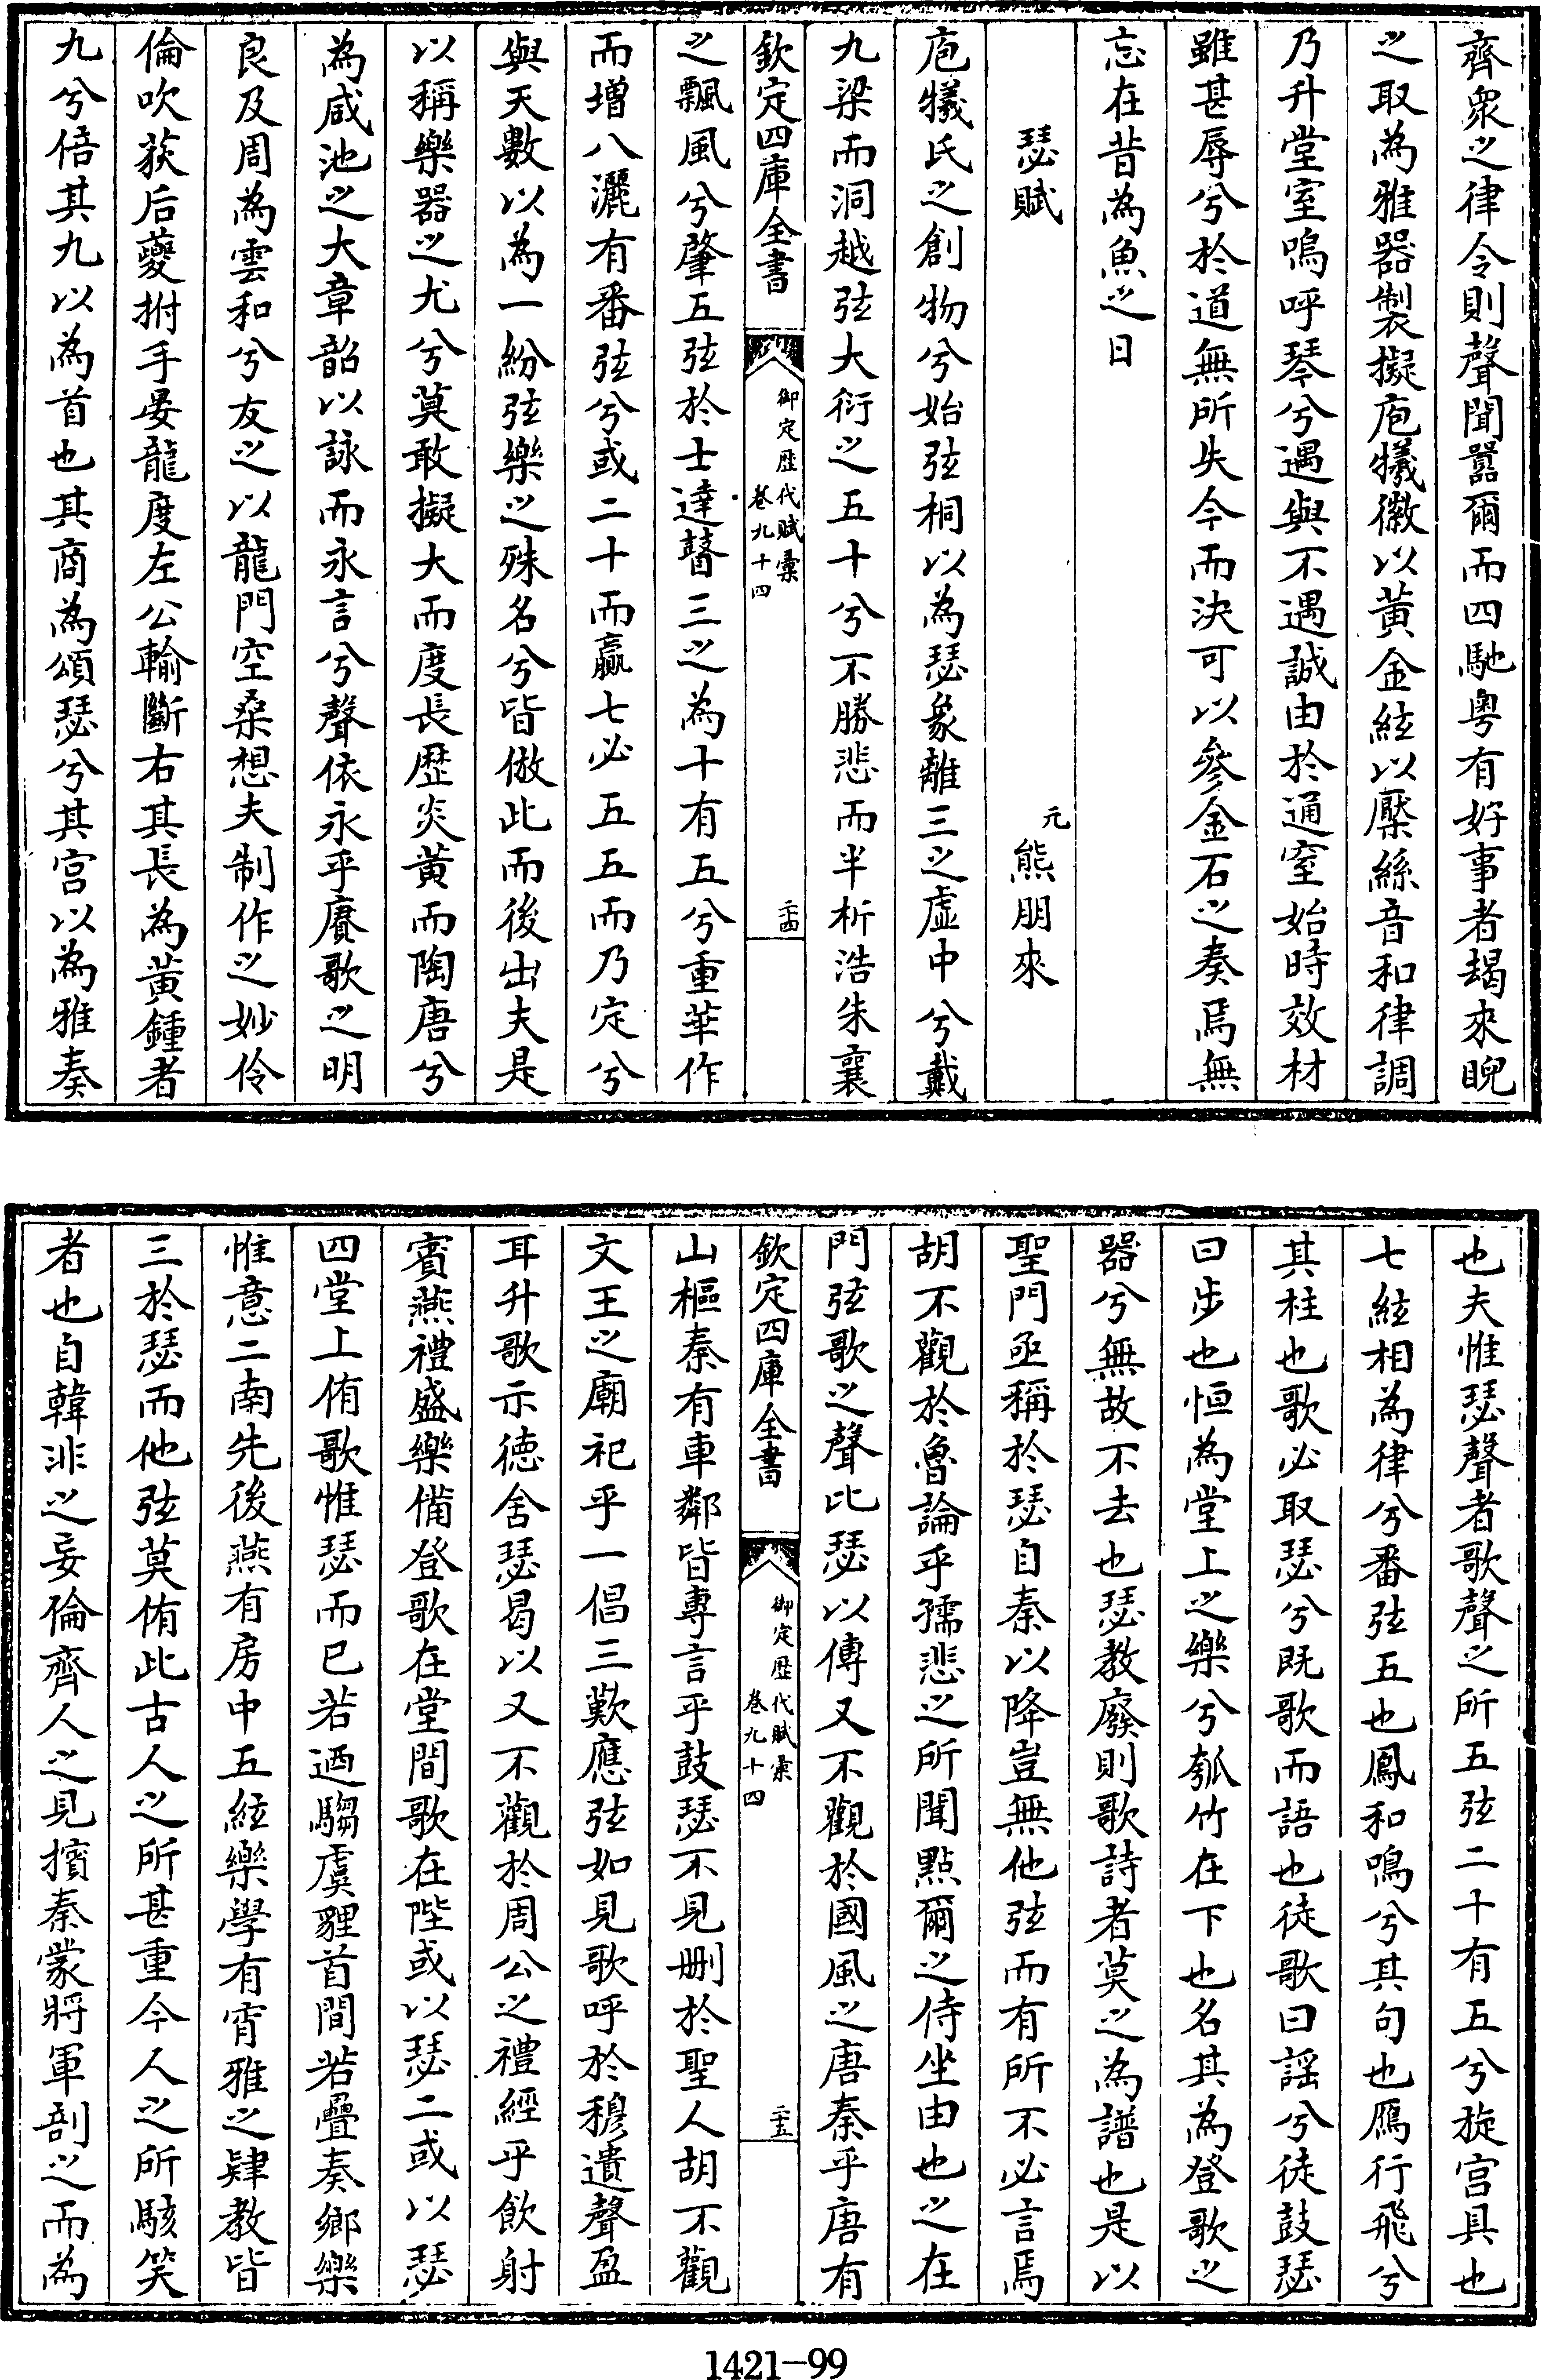 齊衆之律令則聲聞嚚爾而四馳粤有好事者朅來睨
之取為雅器製擬庖犧徽以黄金絃以檿絲音和律調
乃升堂室嗚呼琴兮遇與不遇誠由於通窒始時效材
雖甚辱兮於道無所失今而決可以參金石之奏焉無
忘在昔為魚之日
瑟賦
元熊朋來
庖犧氏之創物兮始弦桐以為瑟象離三之虛中兮戴
九梁而洞越弦大衍之五十兮不勝悲而半析浩朱襄
欽定四庫全書
御定歴代賦彚
卷九十四
二十四
之飄風兮肇五弦於士達瞽三之為十有五兮重華作
而增八灑有番弦兮或二十而贏七必五五而乃定兮
與天數以為一紛弦樂之殊名兮皆倣此而後出夫是
以稱樂器之尤兮莫敢擬大而度長歴炎黄而陶唐兮
為咸池之大章韶以詠而永言兮聲依永乎賡歌之明
良及周為雲和兮友之以龍門空桑想夫制作之妙伶
倫吹荻后夔拊手晏龍度左公輸斷右其長為黄鍾者
九兮倍其九以為首也其商為頌瑟兮其宫以為雅奏
也夫惟瑟聲者歌聲之所五弦二十有五兮旋宫具也
七絃相為律兮番弦五也鳳和鳴兮其句也鴈行飛兮
其柱也歌必取瑟兮既歌而語也徒歌曰謡兮徒鼓瑟
曰步也恒為堂上之樂兮瓠竹在下也名其為登歌之
器兮無故不去也瑟教廢則歌詩者莫之為譜也是以
聖門亟稱於瑟自秦以降豈無他弦而有所不必言焉
胡不觀於魯論乎孺悲之所聞點爾之侍坐由也之在
門弦歌之聲比瑟以傳又不觀於國風之唐秦乎唐有
欽定四庫全書
御定歴代賦彚
卷九十四
二十五
山樞秦有車鄰皆專言乎鼓瑟不見刪於聖人胡不觀
文王之廟祀乎一倡三歎應弦如見歌呼於穆遺聲盈
耳升歌示德舍瑟曷以又不觀於周公之禮經乎飲射
賓燕禮盛樂備登歌在堂間歌在陛或以瑟二或以瑟
四堂上侑歌惟瑟而已若迺騶虞貍首間若疊奏鄉樂
惟意二南先後燕有房中五絃樂學有宵雅之肄教皆
三於瑟而他弦莫侑此古人之所甚重今人之所駭笑
者也自韓非之妄倫齊人之見擯秦蒙將軍剖之而為
1421-99